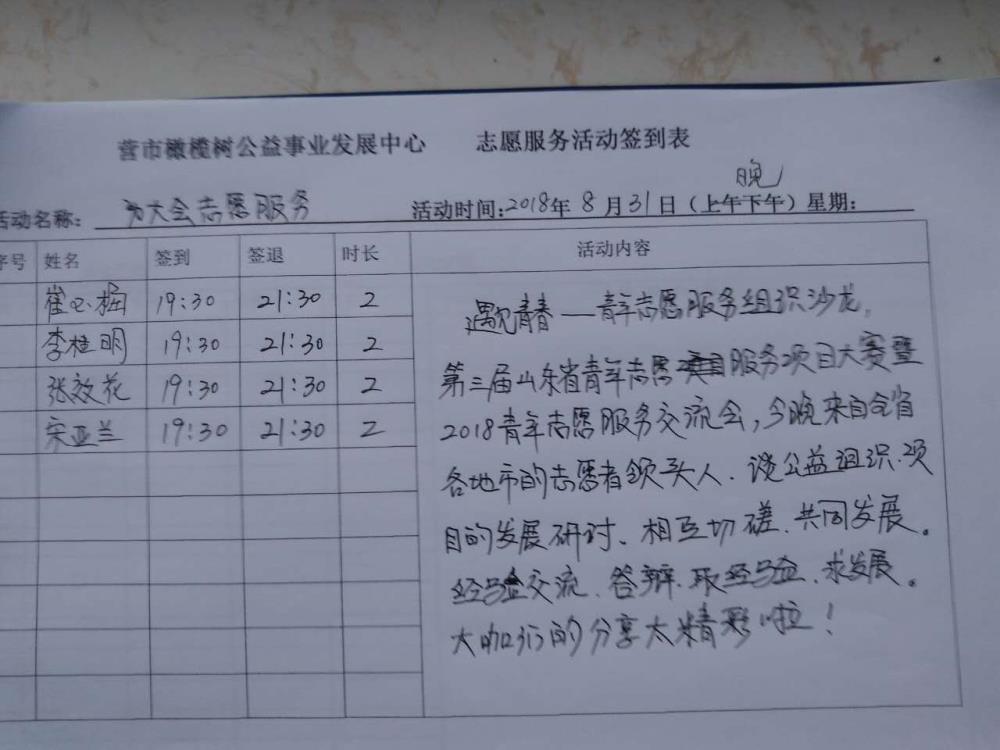 营市橄榄树公益事业发展中心 志愿服务活动签到表
大会志愿服务
活动名称: 活动时间:2018年 8 月 31 日（上午下午）星期:
晚
序号 姓名 签到 签退 时长 活动内容
崔 19:30 21:30 2
李桂明 19:30 21:30 2
张效花 19:30 21:30 2
宋亚兰 19:30 21:30 2
遇见青春——青年志愿服务组织沙龙,
第三届山东省青年志愿服务项目大赛暨
2018青年志愿服务交流会,今晚来自全省
各地市的志愿者领头人、谈公益组织.项
目的发展研讨、相互切磋.共同发展。
经验交流.答辩.取经验.求发展。
大咖们的分享太精彩啦！